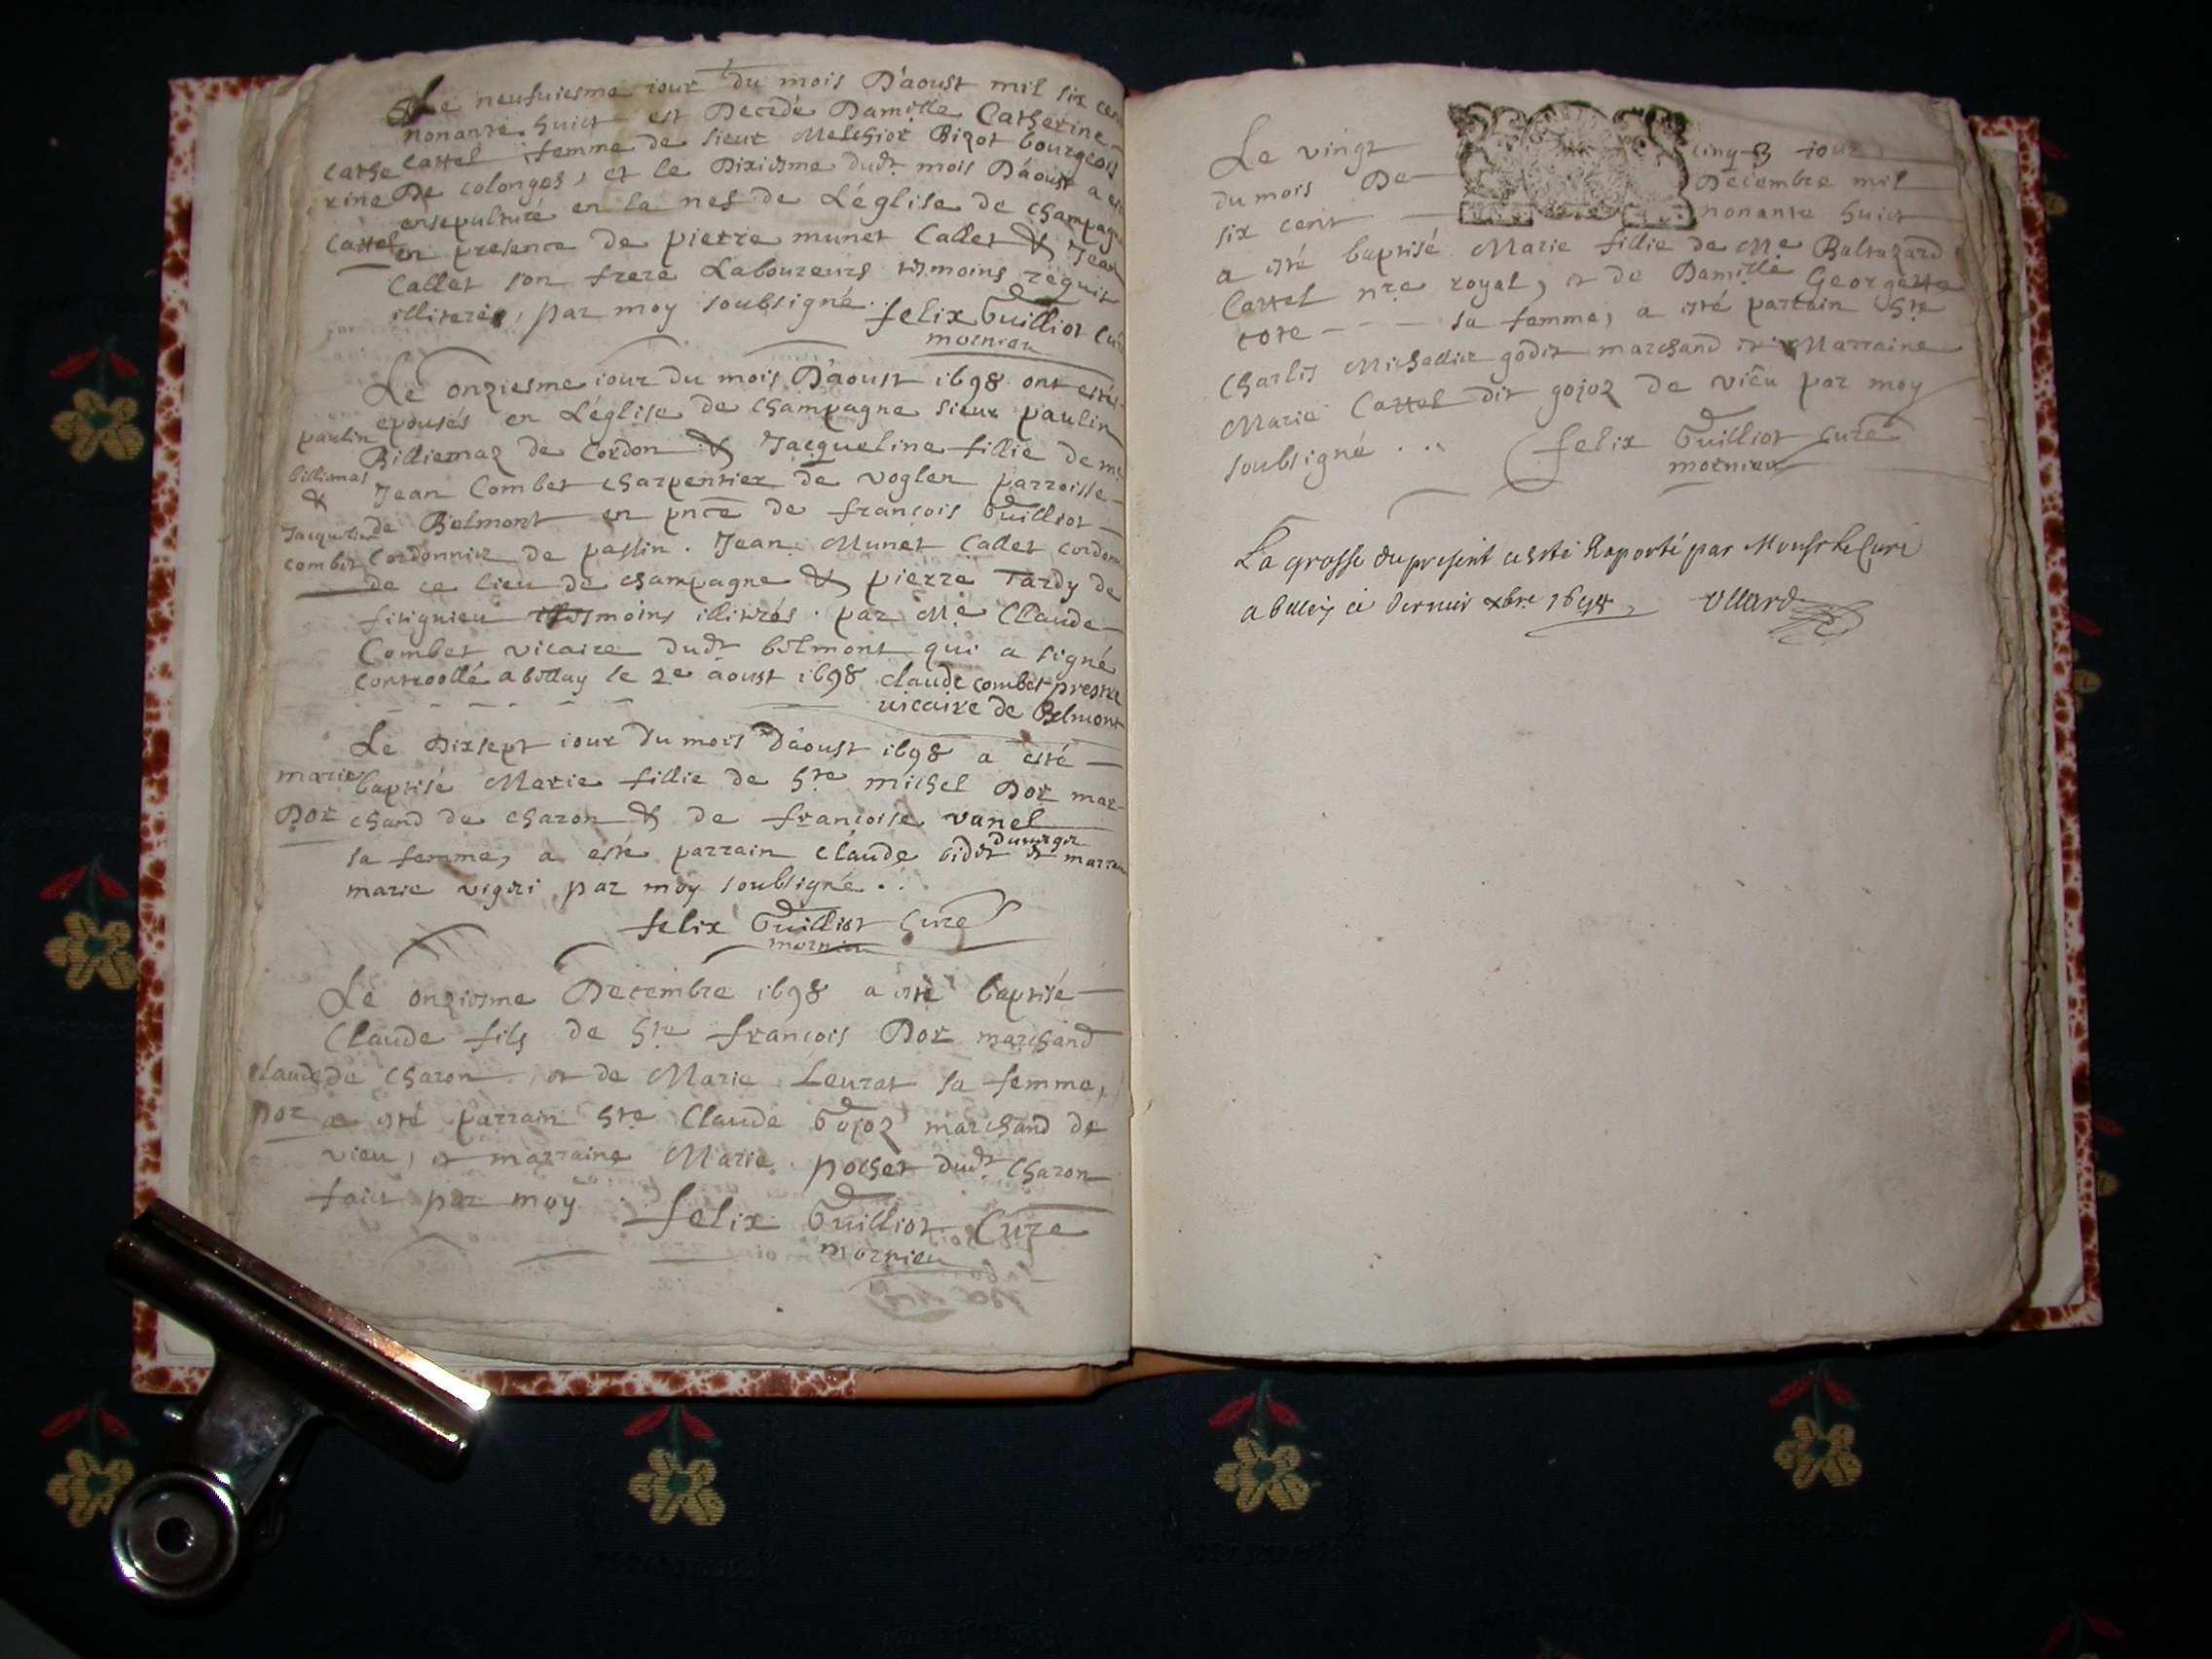 Le neufuiesme iour du mois D'aoust mil six cen
nonante huict est Decedé Damille Catherine
Cathe Cattel femme de sieur Melchior Bizot bourgeois
rine De colonges, et le Dixiesme dudt mois D'aoust a esté
ensepulturé en la nef de L'église de champagne
Cattel en presence de pierre munet Callet & Jean
Callet son frere Laboureurs tesmoins requit
illiterés, par moy soubsigné. felix Guilliot Curé
mornieu
Le onziesme iour Du mois D'aoust 1698 ont estés
epousés en L'église de champagne sieur paulin
paulin Billiemaz de Cordon & Jacqueline fillie de me
billiemaz
& Jean Combet charpentier de voglen parroisse
Jacqueline de Belmont en pnce de francois Guilliot
combet Cordonnier de passin. Jean Munet Callet cordonn
de ce lieu de champagne & pierre Tardy de
fitignieu tesmoins illitérés. par Me Claude
Combet vicaire dudt bélmont qui a signé
Controollé a béllay le 2e aoust 1698 claude combet prestre
uicaire de Belmont
Le Dixsept iour Du mois D'aoust 1698 a esté
marie baptisé Marie fillie de hre michel Dor mar-
Dor chand de charon & de francoise vanel
sa femme, a esté parrain claude bidet et marraine
marie vigeri par moy soubsigné.
felix Guilliot Curé
mornieu
Le onziesme Decembre 1698 a esté baptisé
Claude fils de hre francois Dor marchand
claude de Charon, et de Marie Leurat sa femme,
Dor a esté parrain hre Claude Gojoz marchand de
vieu, et marraine Marie pochet dudt Charon
faict par moy felix Guilliot Curé
mornieu
Le vingt cinq iour
du mois De Decembre mil
six cent nonante huict
a esté baptisé Marie fillie de Me Baltazard
Cattel nre royal, et de Damille Georgette
cote sa femme, a esté parrain hre
Charles Michallier godet marchand et Marraine
Marie Cattel dit gojoz de vieu par moy
soubsigné felix Guilliot curé
mornieu
La grosse du present a esté Raporté par Monsr le Curé
a belley ce dernier xbre 1698 Ullard